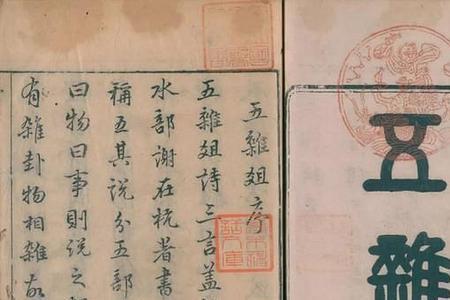 五雜
五雜俎序
五雜俎詩三言蓋
水部謝在杭著書
稱五其說分五部
曰物曰事則說之
有雜卦物相雜故